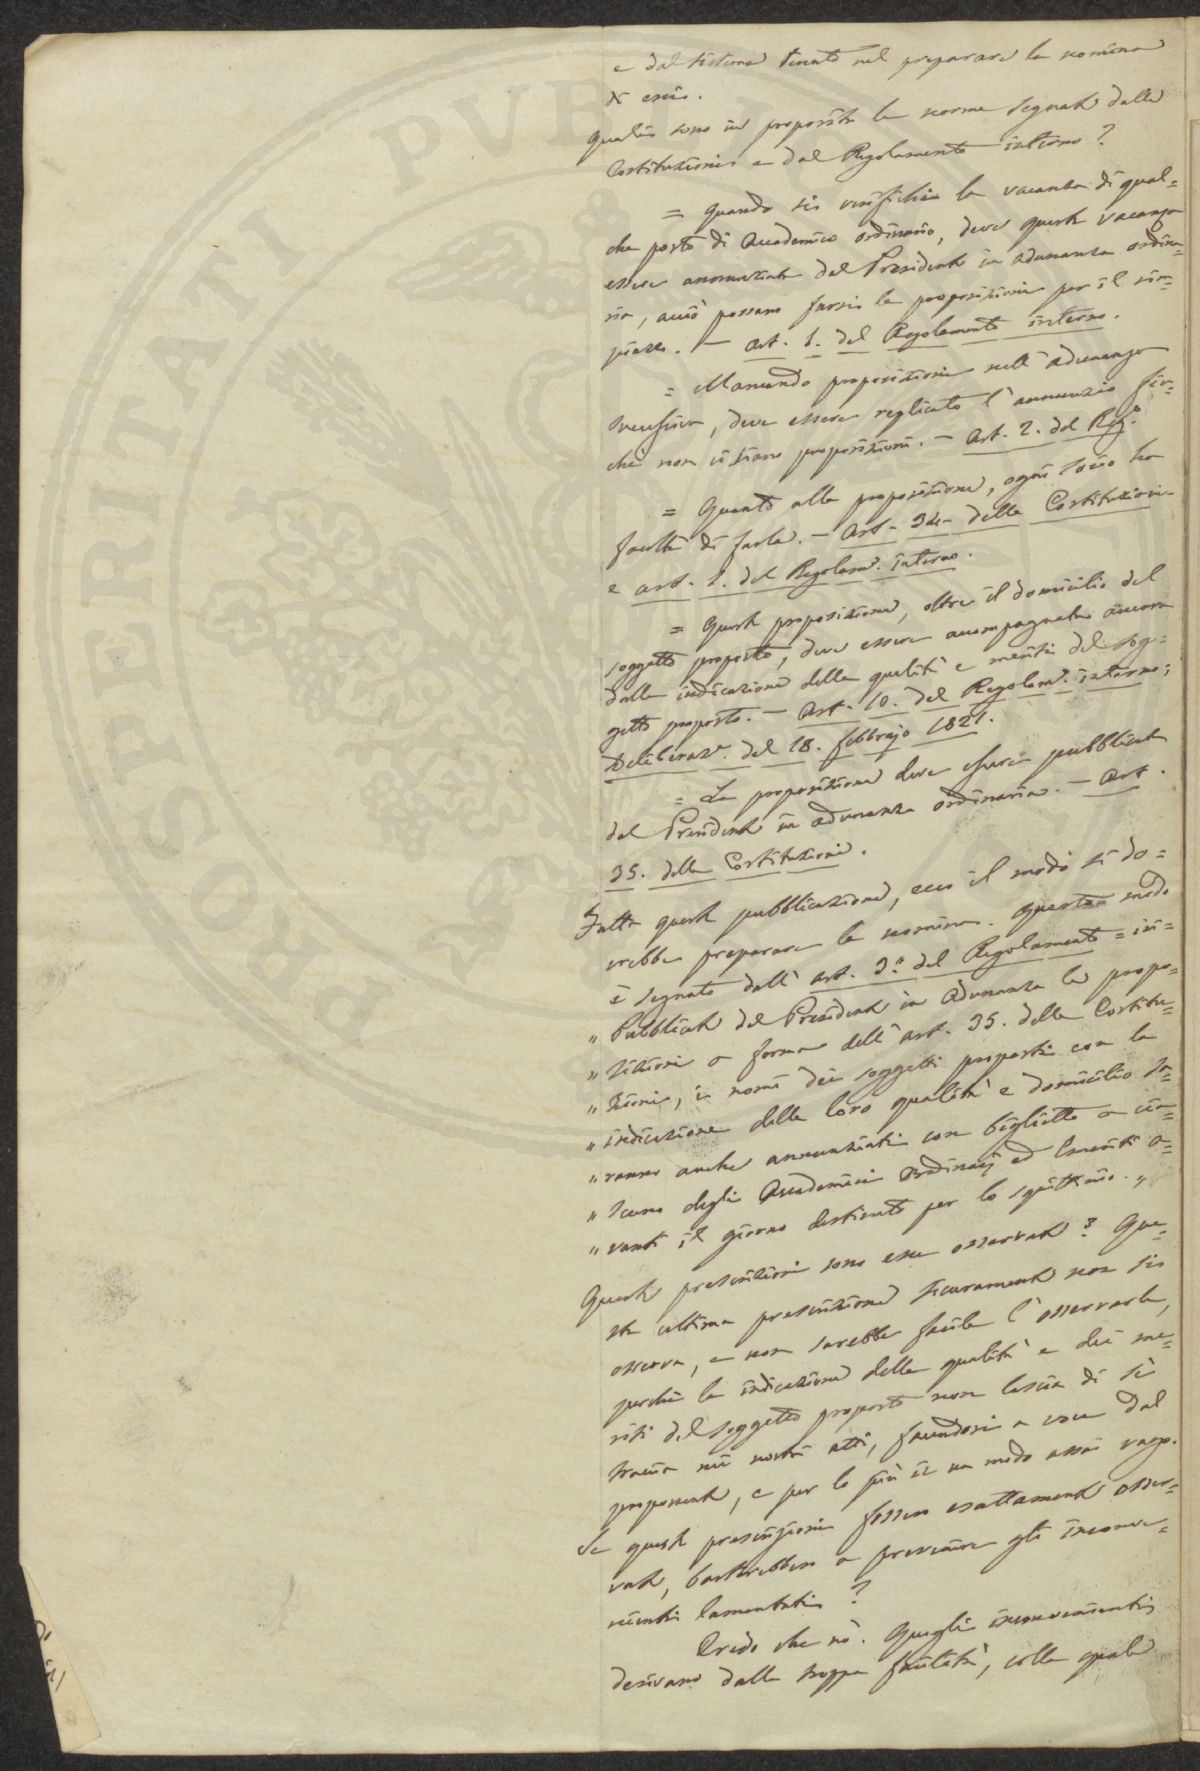 e dal sistema tenuto nel preparare la nomina
di essi.
Quali sono in proposito le norme segnate dalle
Costituzioni e dal Regolamento interno?
= Quando si verifichi la vacanza di qual=
che posto di Accademico ordinario, deve questa vacanza
essere annunziata dal Presidente in adunanza ordina=
ria, acciò possano farsi le proposizioni per il rim=
piazzo. — Art. 1. del Regolamento interno.
= Mancando proposizioni nell'adunanza
successiva, deve essere replicato l'annunzio fin=
chè non vi siano proposizioni. — Art. 2. del Reg.°
= Quanto alla proposizione, ogni Socio ha
facoltà di farla. — Art. 34. delle Costituzioni
e art. 1. del Regolam. interno.
= Questa proposizione, oltre il domicilio del
soggetto proposto, deve essere accompagnata ancora
dalla indicazione delle qualità e meriti del sog=
getto proposto. — Art. 10. del Regolam. interno;
Deliberaz.e del 18. febbrajo 1821.
= La proposizione deve essere pubblicata
dal Presidente in adunanza ordinaria. — Art.
35. delle Costituzioni.
Fatta questa pubblicazione, ecco il modo si do=
vrebbe preparare la nomina. Questo modo
è segnato dall'art. 3.° del Regolamento = ivi =
" Pubblicate dal Presidente in Adunanza le propo=
" sizioni a forma dell'art. 35. delle Costitu=
" zioni, i nomi dei soggetti proposti con la
" indicazione delle loro qualità e domicilio sa=
" ranno anche annunziati con biglietto a cia=
" scuno degli Accademici Ordinarj ed Emeriti a=
" vanti il giorno destinato per lo squittinio. "
Queste prescrizioni sono esse osservate? Que=
sta ultima prescrizione sicuramente non si
osserva, e non sarebbe facile l'osservarla,
perchè la indicazione delle qualità e dei me=
riti del soggetto proposto non lascia di sè
traccia nei nostri atti, facendosi a voce dal
proponente, e per lo più in un modo assai vago.
Se queste prescrizioni fossero esattamente osser=
vate, basterebbero a prevenire gli inconve=
nienti lamentati?
Credo che nò. Quegli inconvenienti
derivano dalla troppa facilità, colla quale